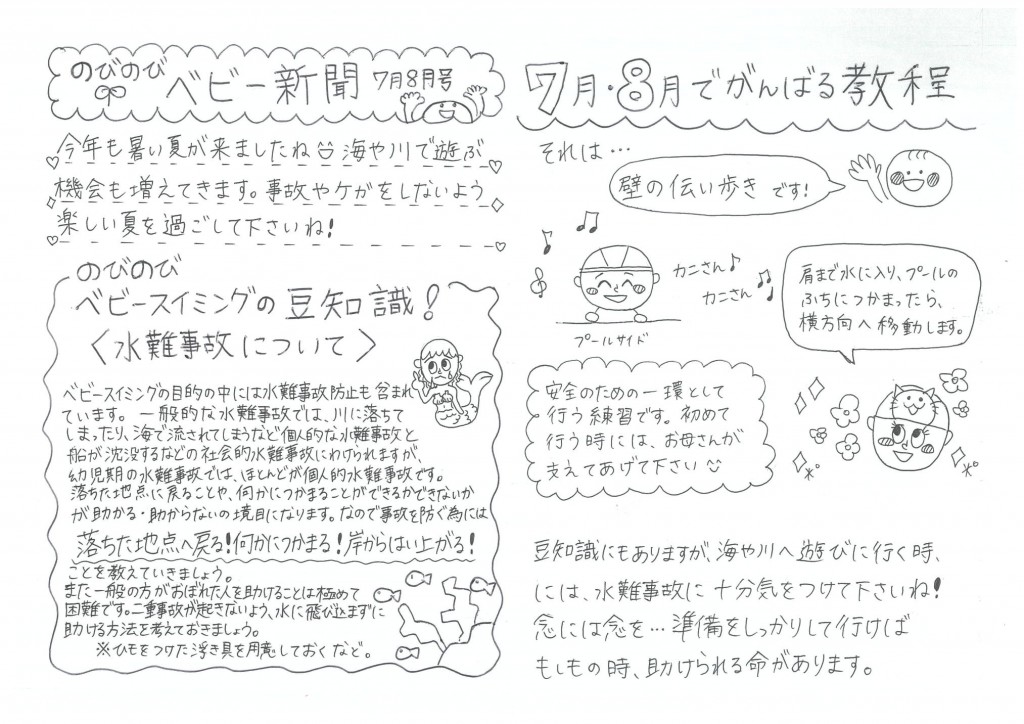 のびのび
ベビー新聞 7月8月号
今年も暑い夏が来ましたね 海や川で遊ぶ
機会も増えてきます。事故やケガをしないよう
楽しい夏を過ごして下さいね!
のびのび
ベビースイミングの豆知識!
〈水難事故について〉
ベビースイミングの目的の中には水難事故防止も含まれ
ています。一般的な水難事故では、川に落ちて
しまったり、海で流されてしまうなど個人的な水難事故と
船が沈没するなどの社会的水難事故にわけられますが、
幼児期の水難事故では、ほとんどが個人的水難事故です。
落ちた地点に戻ることや、何かにつかまることができるかできないか
が助かる・助からないの境目になります。なので事故を防ぐ為には
落ちた地点へ戻る!何かにつかまる!岸からはい上がる!
ことを教えていきましょう。
また一般の方がおぼれた人を助けることは極めて
困難です。二重事故が起きないよう、水に飛び込まずに
助ける方法を考えておきましょう。
※ひもをつけた浮き具を用意しておくなど。
7月・8月でがんばる教程
それは…
壁の伝い歩きです!
カニさん♪
カニさん♫
プールサイド
肩まで水に入り、プールの
ふちにつかまったら、
横方向へ移動します。
安全のための一環として
行う練習です。初めて
行う時には、お母さんが
支えてあげて下さい
豆知識にもありますが、海や川へ遊びに行く時、
には、水難事故に十分気をつけて下さいね!
念には念を…準備をしっかりして行けば
もしもの時、助けられる命があります。